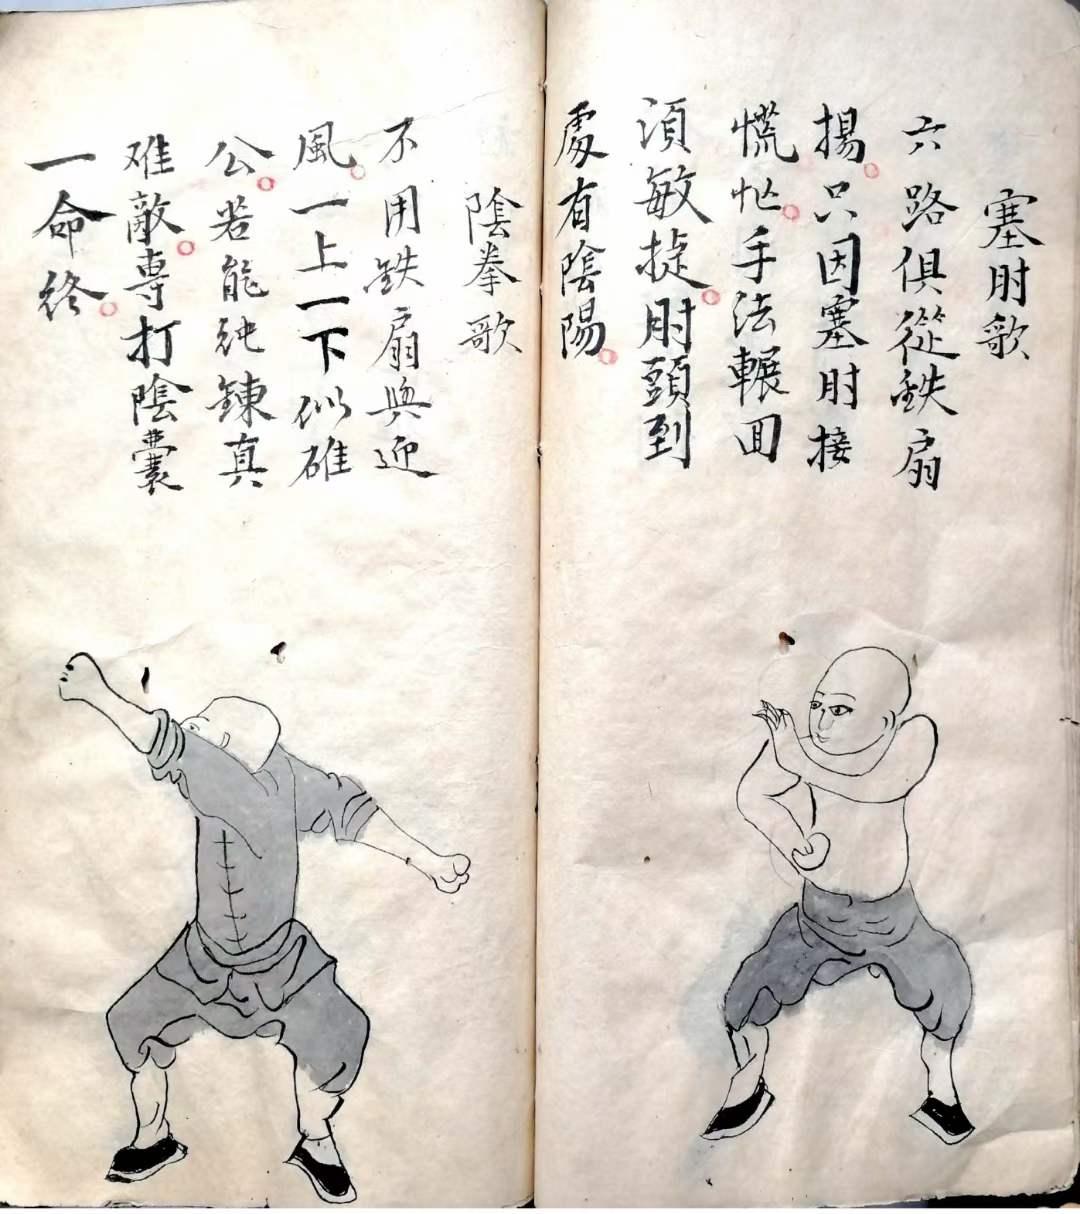 塞肘歌
六路俱從鉄扇
揚。只因塞肘接
慌忙。手法輾囬
湏敏捷。肘頭到
處有陰陽。
陰拳歌
不用鉄扇與迎
風。一上一下似碓
公。若能純鍊真
难敵。專打陰囊
一命終。